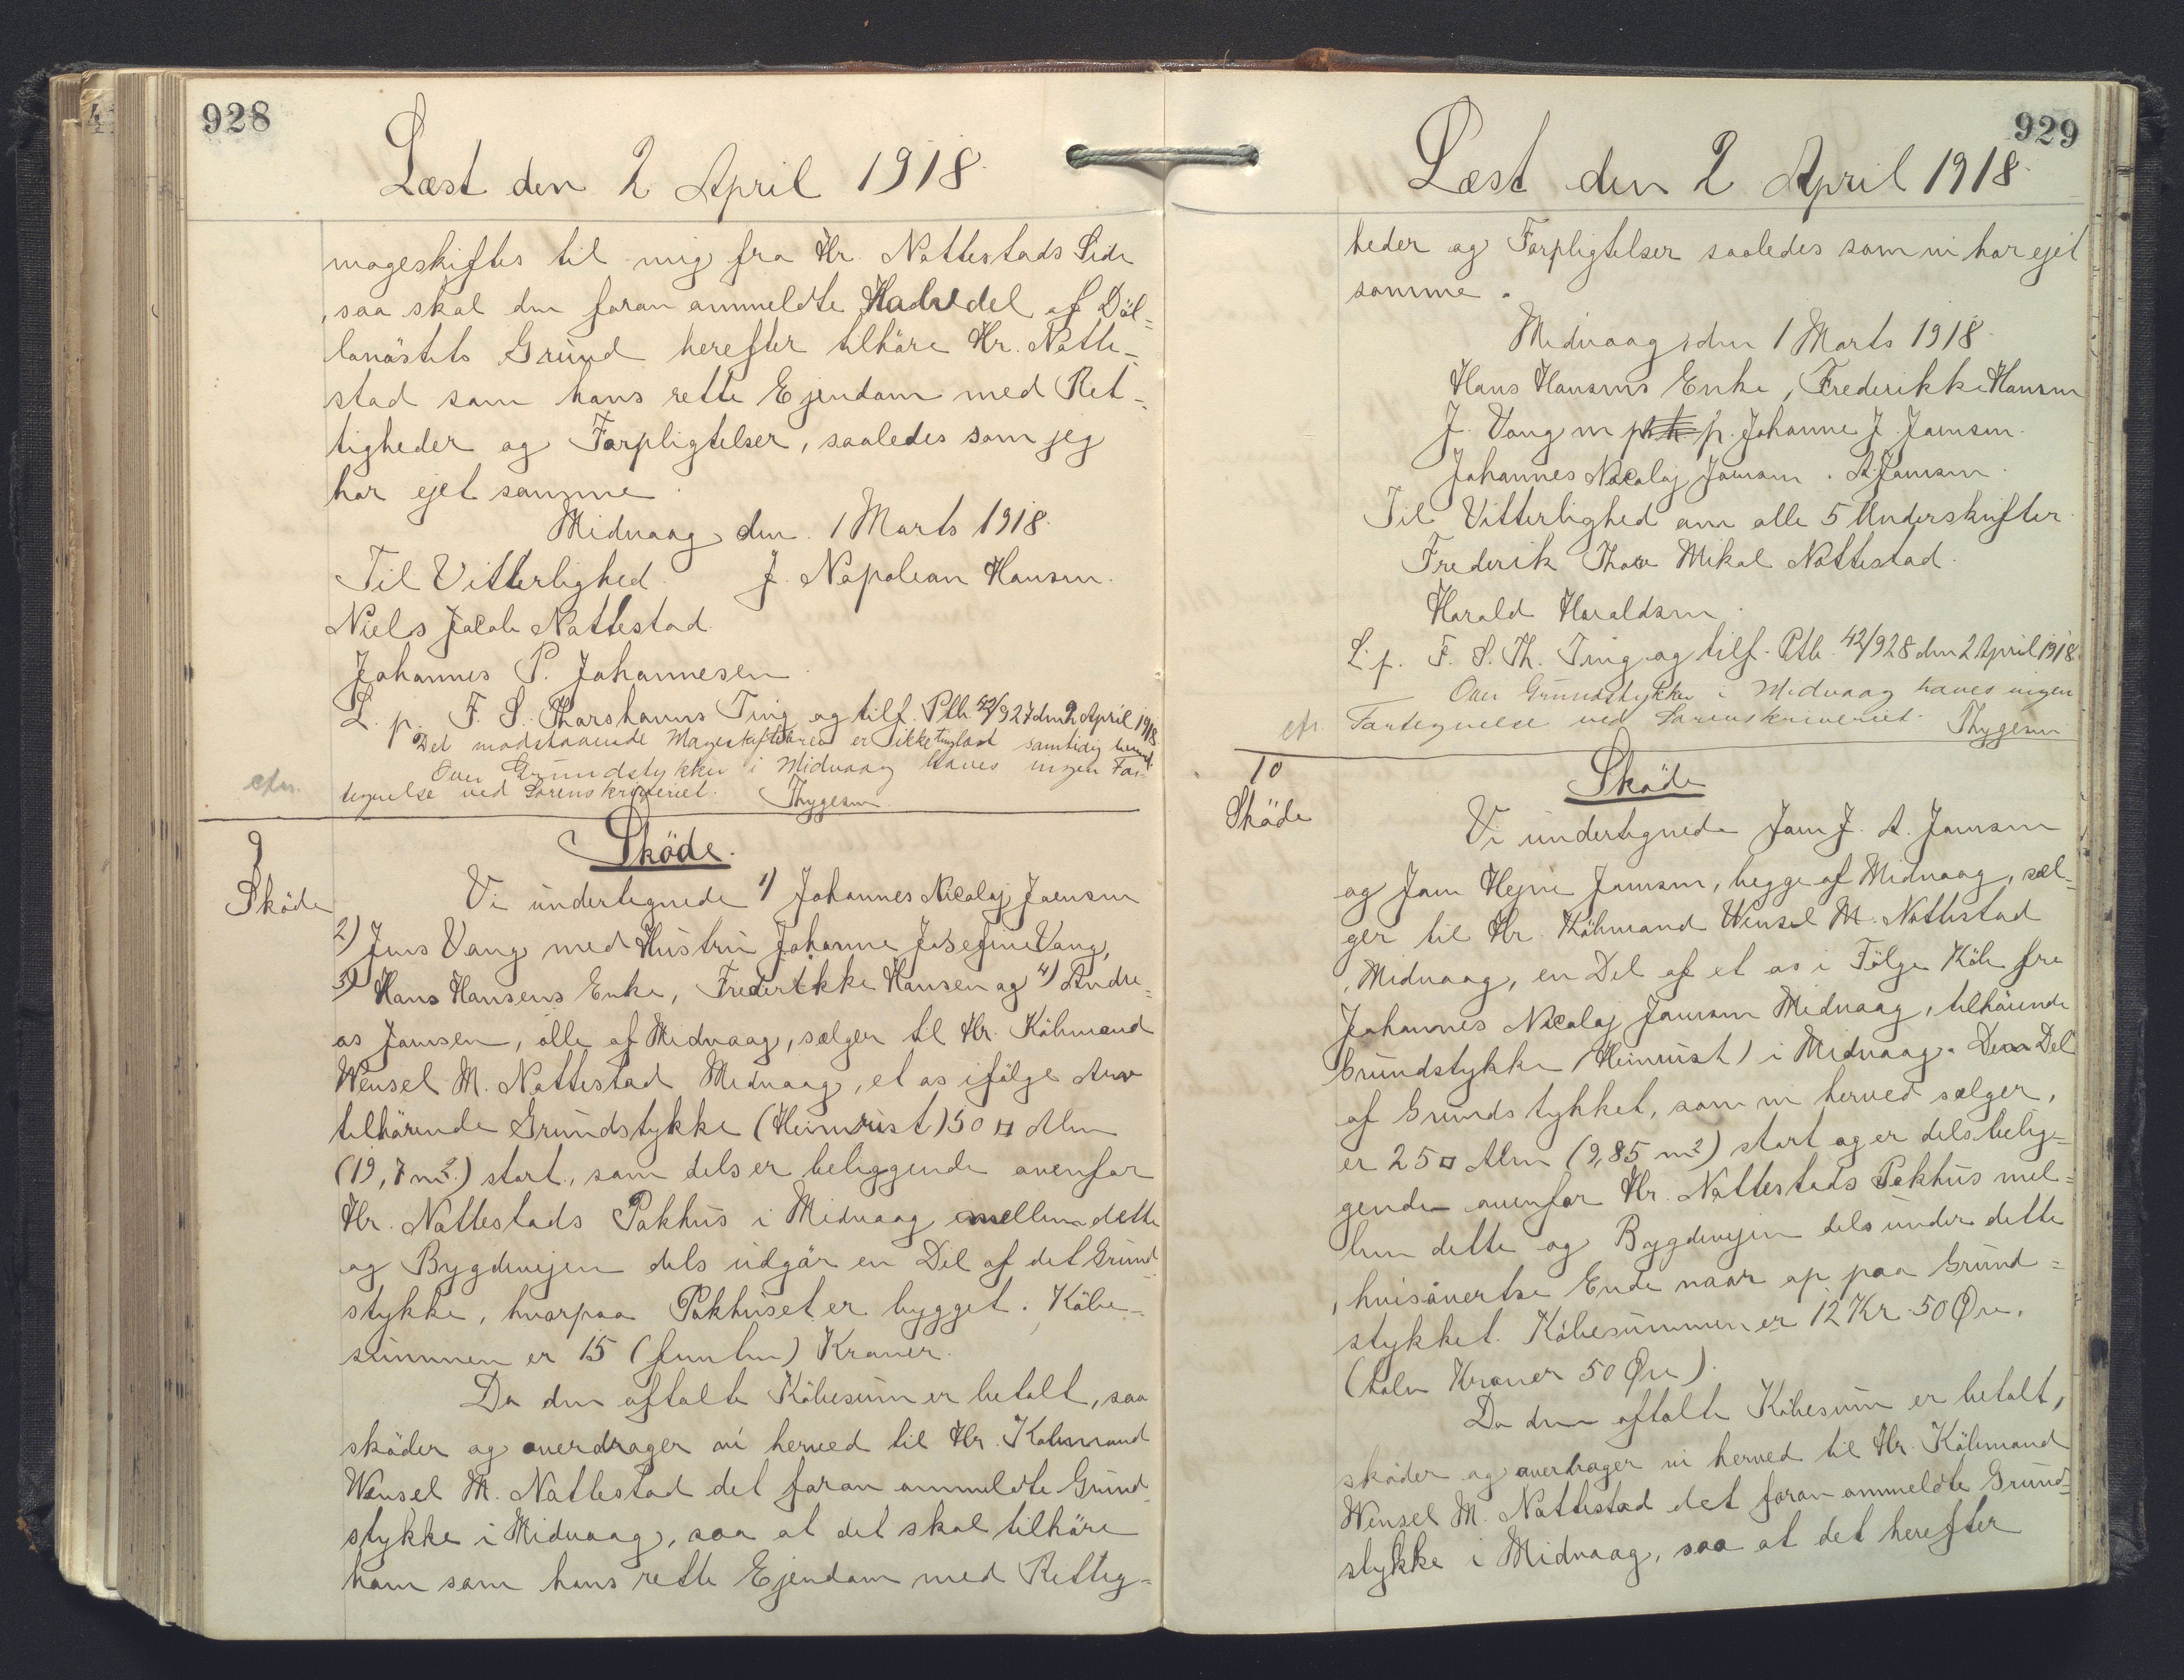 928
Læst den 2 April 1918.
mageskiftes til mig fra Hr. Nattestads Side
, saa skal den foran anmeldte Halvdel af Döl-
lanästets Grund herefter tilhöre Hr. Natte-
stad som hans rette Ejendom med Ret-
tigheder og Forpligtelser, saaledes som jeg
har ejet samme.
Midvaag den 1 Marts 1918.
Til Vitterlighed. J. Napolean Hansen.
Niels Jacob Nattestad
Johannes P. Johannesen
L. p. F. S. Thorshavns Ting og tilf. Ptb. 42/927 den 2 April 1918
Det modstaaende Mageskiftebrev er ikke tinglæst samtidig hermed.
Over Grundstykker i Midvaag haves ingen For-
cfr.
tegnelse ved Sorenskriveriet. Thygesen
9
Sköde.
Sköde
Vi undertegnede 1) Johannes Nicolaj Joensen
2) Jens Vang med Hustru Johanne Josefine Vang,
3) Hans Hansens Enke, Frederikke Hansen og 4) Andre-
as Joensen, alle af Midvaag, sælger til Hr. Köbmand
Wensel M. Nattestad Midvaag, et os ifölge Arv
tilhörende Grundstykke (Heimrúst) 50 □ Alen
(19,7 m2.) stort, som dels er beliggende ovenfor
Hr. Nattestads Pakhus i Midvaag imellem dette
og Bygdevejen dels udgör en Del af det Grund-
stykke, hvorpaa Pakhuset er bygget. Købe-
summen er 15 (femten) Kroner.
Da den aftalte Köbesum er betalt, saa
sköder og overdrager vi herved til Hr. Købmand
Wensel M. Nattestad det foran anmeldte Grund-
stykke i Midvaag, saa at det skal tilhöre
ham som hans rette Ejendom med Rettig-
929
Læst den 2 April 1918.
heder og Forpligtelser saaledes som vi har ejet
samme.
Midvaag, den 1 Marts 1918.
Hans Hansens Enke, Frederikke Hansen
J. Vang m p. Johanne J. Joensen.
Johannes Nicolaj Joensen. A. Joensen.
Til Vitterlighed om alle 5 Underskrifter.
Frederik Thore Mikal Nattestad.
Harald Haraldsen.
L. p. F. S. Th. Ting og tilf. Ptb. 42/928 den 2 April 1918.
Over Grundstykker i Midvaag haves ingen
cfr. Fortegnelse ved Sorenskriveriet. Thygesen
10
Sköde
Sköde
Vi undertegnede Joen J. A. Joensen
og Joen Hejne Joensen, begge af Midvaag, sæl-
ger til Hr. Köbmand Wensel M. Nattestad
, Midvaag, en Del af et os i Fölge Köb fra
Johannes Nicolaj Joensen Midvaag, tilhörende
Grundstykke (Heimrúst) i Midvaag. Den Del
af Grundstykket, som vi herved sælger,
er 25 □ Alen (9,85 m2) stort og er dels belig-
gende ovenfor Hr. Nattestads Pakhus mel-
lem dette og Bygdevejen dels under dette
, hvis överste Ende naar op paa Grund-
stykket. Köbesummen er 12 Kr. 50 Øre.
(tolv Kroner 50 Øre).
Da den aftalte Köbesum er betalt,
sköder og overdrager vi herved til Hr. Köbmand
Wensel M. Nattestad det foran anmeldte Grund-
stykke i Midvaag, saa at det herefter